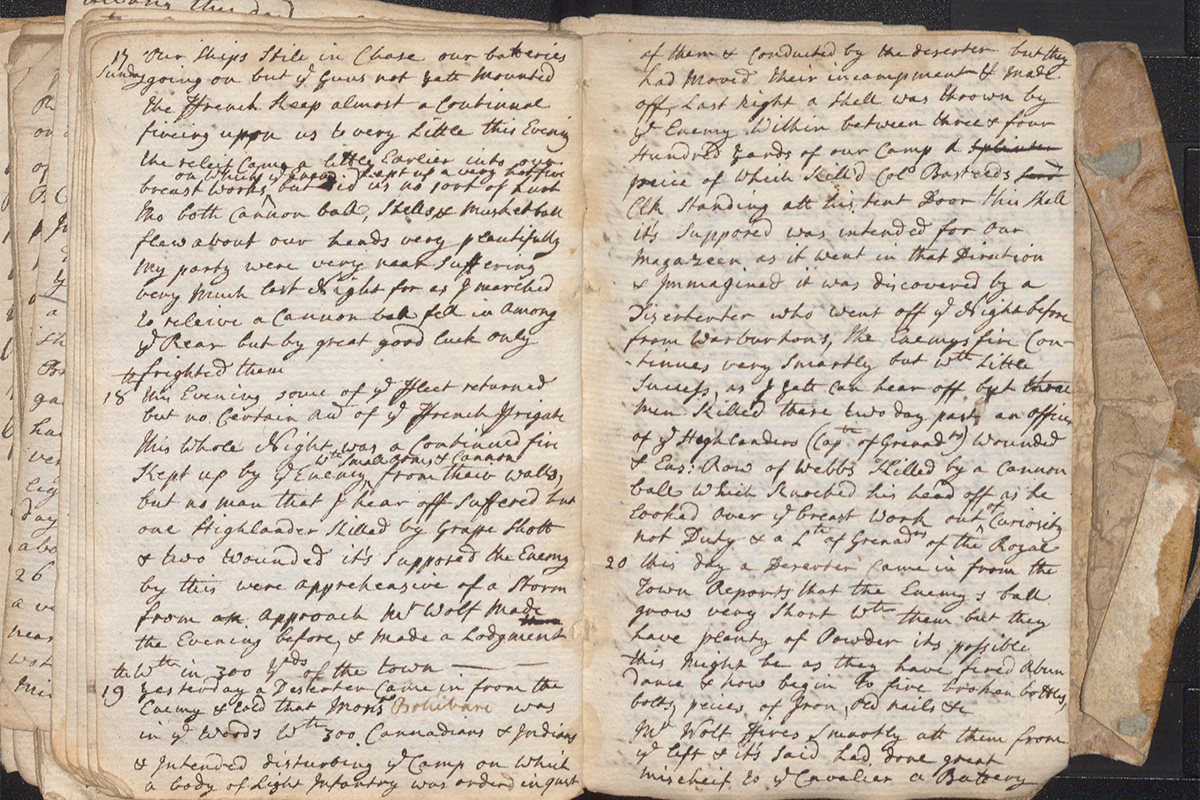 17 Our Ships Still in Chase our batteries
Sunday going on but ye Guns not yett Mounted
the ffrench Keep almost a Continual
fireing upon us to very Little this Evenig
the releif Came a little Earlier into our
on Which ye Enemy Kept up a very hot fire
breast works, but did us no sort of hurt
tho both Cannon ball, Shells & Musket ball
flew about our heads very plentifully
my party were very near Suffering
very Much last Night for as I marched
to releive a Cannon ball fell in Among
ye Rear but by great good luck only
frighted them
18th this Evening some of ye ffleet returned
but no Certain Acct of ye ffrench ffrigate
this Whole Night was a Continued fire
wth Small Arms & Cannon
Kept up by ye Enemy from their walls,
but no man that I hear off Suffered but
one Highlander Killed by Grape Shott
& two Wounded it's Supposed the Enemy
by this were apprehensive of a Storm
from an approach Mr Wolf Made
the Evening before, & Made a Lodgment
wth in 300 yrds of the town — — —
19th Yesterday a Deserter Came in from the
Enemy & told that Monsr was
in ye Woods wth 300 Cannadians & Indians
& Intended disturbing ye Camp on which
a body of Light Infantry was orderd in quist
of them & Conducted by the deserter but they
had Moved their incampment & Made
off, Last Night a Shell was thrown by
ye Enemy Within between three & four
Hundred yards of our Camp a splinter
peice of Which Kill'd Col Basteeds
Clk Standing att his tent Door this Shell
its Supposed was intended for our
Magazeen as it went in that Diration
& Immagined it was discovered by a
who went off ye Night before
from Warburtons, the Enemys fire Con-
tinues very Smartly but wth Little
Success, as I yett can hear off but three
men Killed these two day past, an officer
of ye Heghlanders (Captn of Grenadrs) Wounded
& Ens: Row of Webbs Killed by a Cannon
ball Which Knocked his head off as he
Looked Over ye breast Work out of Curiosity
not Duty & a Lt of Grenadrs of the Royal
20 this day a Deserter Came in from the
Town Reports that the Enemy's ball
grow very Short wth them but they
have plenty of Powder its possible
this Might be as they have fired Abun
dance & now begin to fire broken bottles,
bolts, peices of Iron, old nails &c
Mr Wolf ffires Smartly att them from
ye left & it's Said had done great
mischeif to ye Cavalier a Battery